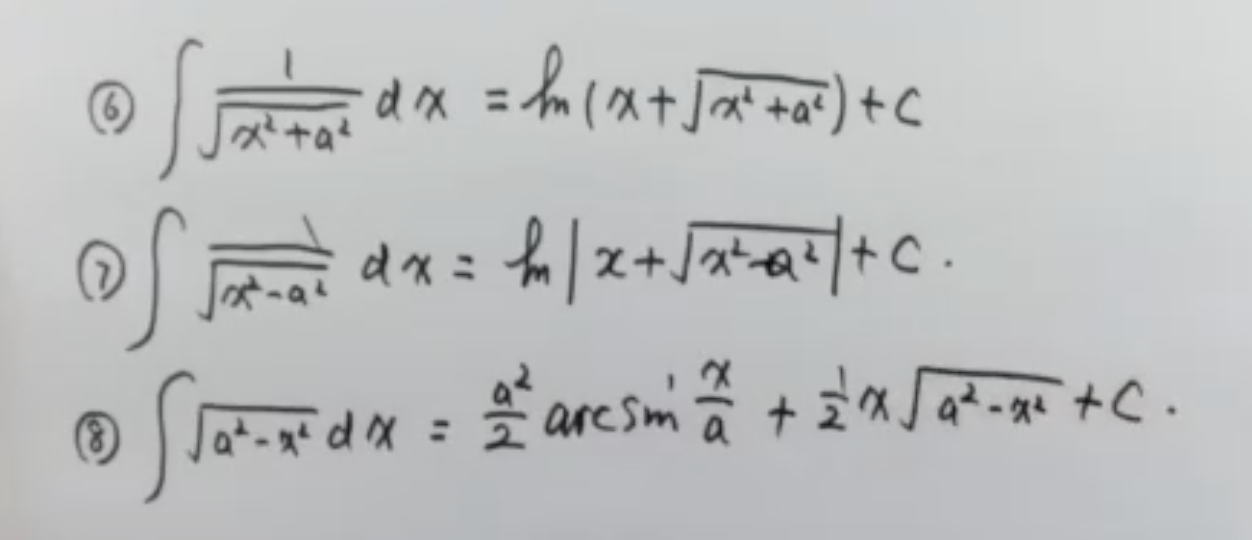 ⑥ ∫ 1/√(x²+a²) dx = ln(x+√(x²+a²))+C
⑦ ∫ 1/√(x²-a²) dx = ln|x+√(x²-a²)|+C.
⑧ ∫ √(a²-x²) dx = a²/2 arcsin x/a + 1/2 x√(a²-x²) +C.